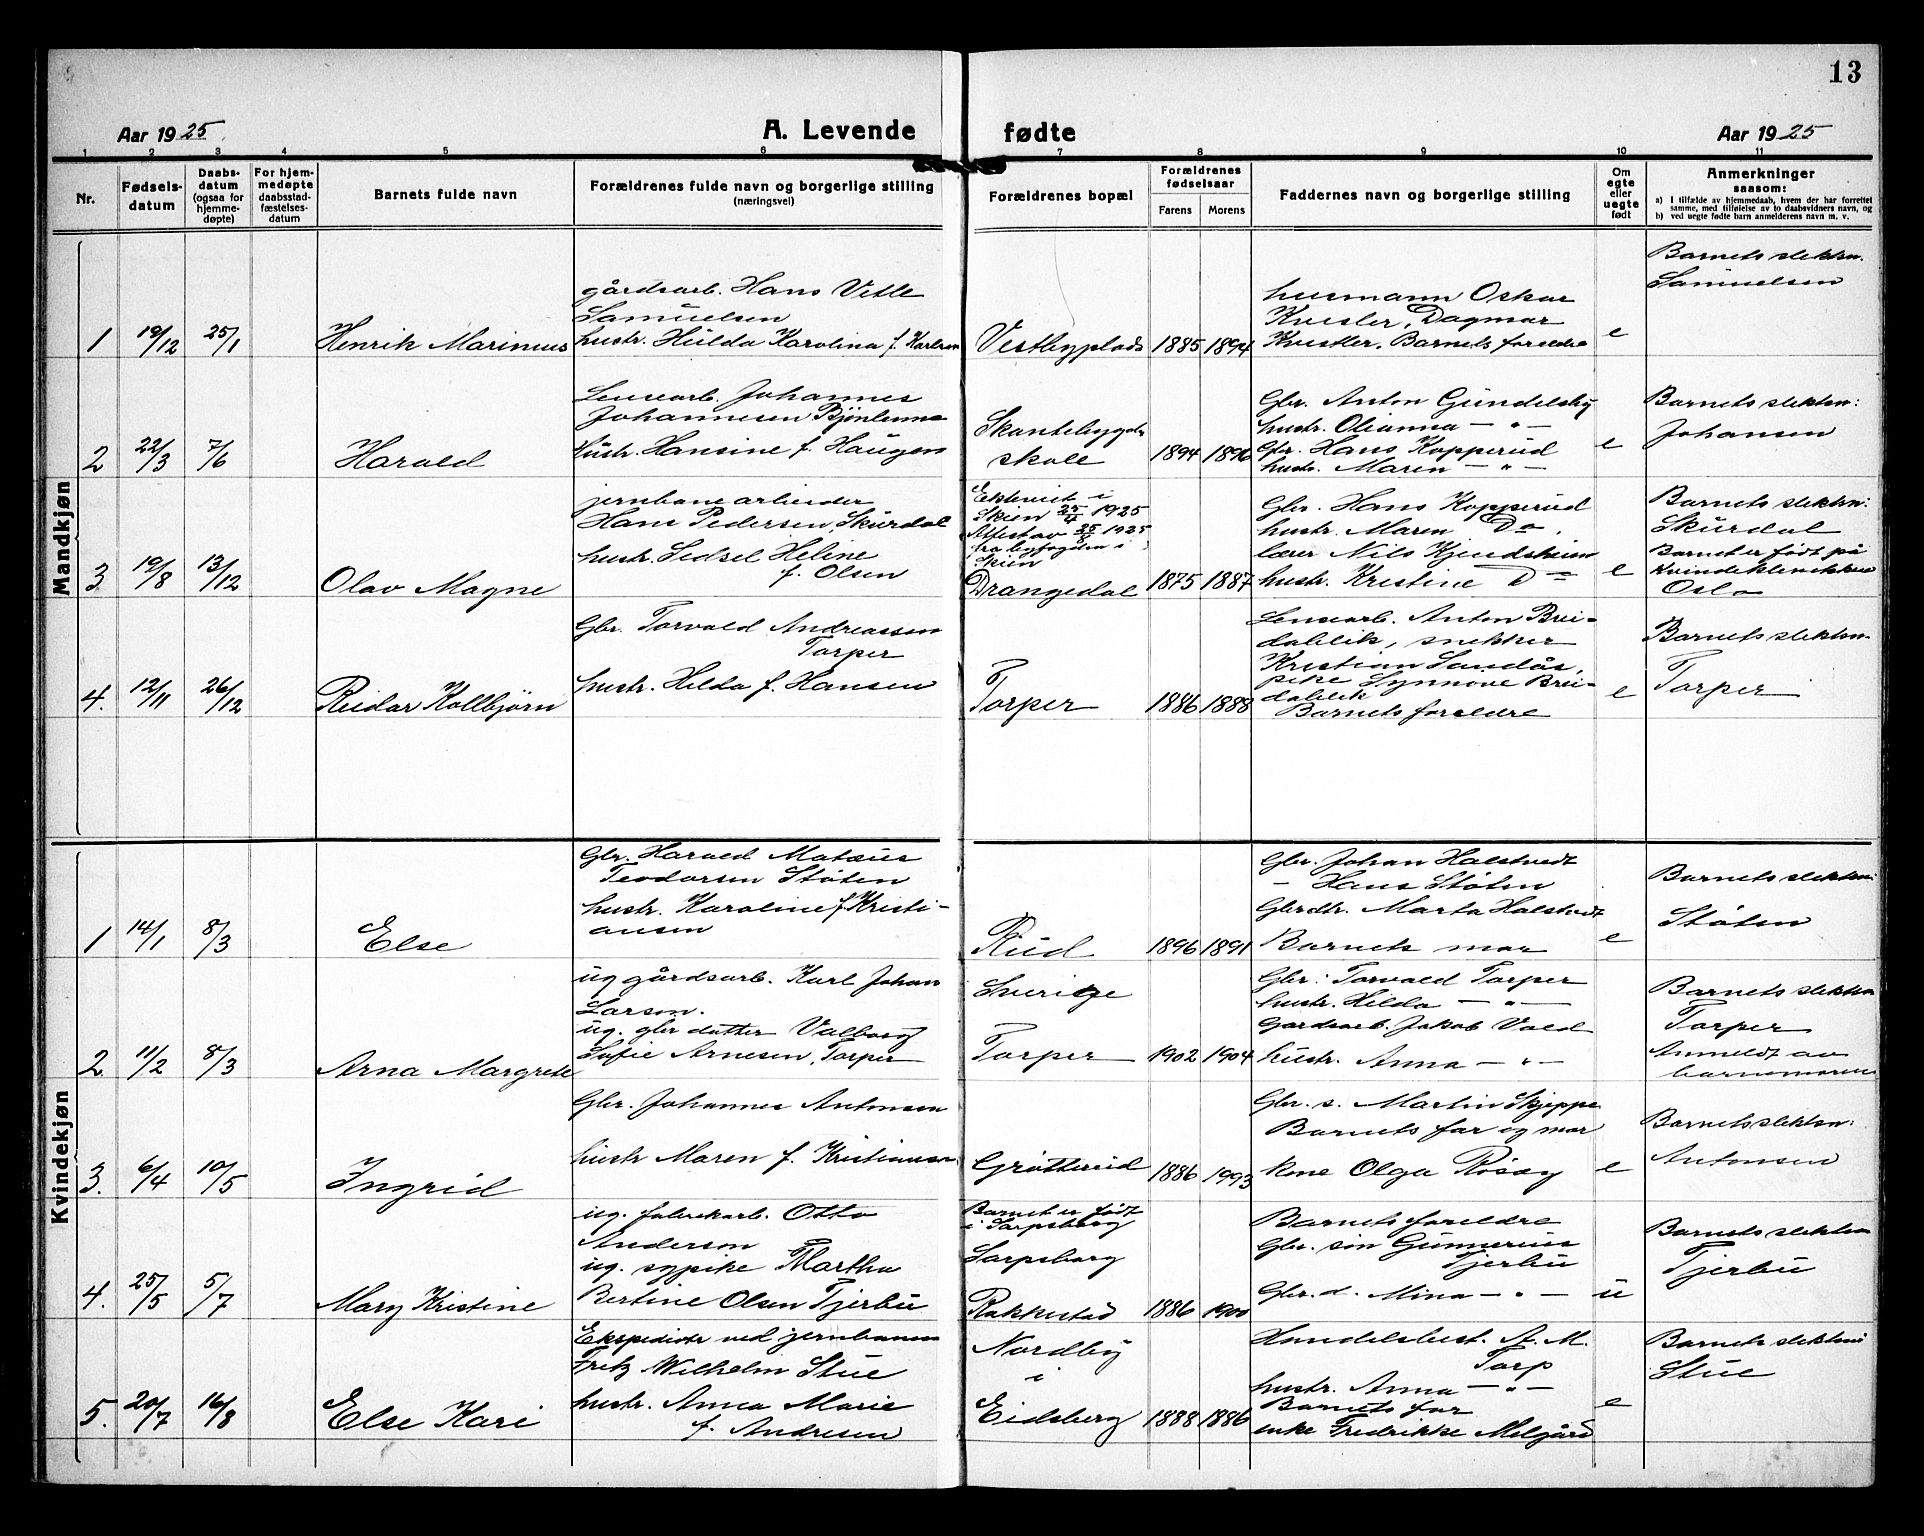 13
Aar 1925
A. Levende fødte
Aar 1925
1 2 3 4 5 6 7 8 9 10 11
Nr.
Fødsels-
datum
Daabs-
datum
(ogsaa for
hjemme-
døpte)
For hjem-
medøpte
daabsstad-
fæstelses-
datum
Barnets fulde navn
Forældrenes fulde navn og borgerlige stilling
(næringsvei)
Forældrenes bopæl
Forældrenes
fødselsaar
Farens Morens
Faddernes navn og borgerlige stilling
Om
egte
eller
uegte
født
Anmerkninger
saasom:
a) I tilfælde av hjemmedaab, hvem der har forrettet
samme, med tilføielse av to daabsvidners navn, og
b) ved uegte fødte barn anmelderens navn m. v.
Mandkjøn
1 19/12 25/1 Henrik Marinius
gårdsarb. Hans Vetle
Samuelsen
hustr. Hulda Karolina f. Karlsen
Vestbyplads 1885 1894
husmann Oskar
Kvisler, Dagmar
Kvistler. Barnets foreldre
e
Barnets slektsn.
Samuelsen
2 22/3 7/6 Harald
Lensearb. Johannes
Johannesen Bjönlenna
Hustr. Hansine f. Haugen
Skantebygde
skole 1894 1896
Gbr. Anton Gundelsby
hustr. Olianna — " —
Gbr. Hans Kopperud
hustr. Maren — " —
e
Barnets slektsn:
Johansen
3 19/8 13/12 Olav Magne
jernbanearbeider
Hans Pedersen Skurdal
hustr. Sidsel Heline
f. Olsen
Ekteviet i
Skien 25/4 1925
Attest av 25/8 1925
fra byfogden i
Skien
Drangedal 1875 1887
Gbr. Hans Kopperud
hustr. Maren Do.
lærer Nils Kjendsheim
hustr. Kristine Do
e
Barnets slektsn:
Skurdal
Barnet er født på
kvindeklinikken
Oslo
4. 12/11 26/12 Reidar Kolbjørn
Gbr. Torvald Andreassen
Torper
hustr. Hilda f. Hansen
Torper 1886 1888
Lensearb. Anton Brei-
dablik, snekker
Kristian Sandås,
pike Synnove Brei-
dablik
Barnets foreldre
e
Barnets slektsn.
Torper
Kvindekjøn
1 14/1 8/3 Else
Gbr. Harald Matæus
Teodorsen Støten
hustr. Karoline f. Kristi-
ansen
Rud 1896 1891
Gbr. Johan Halstvedt
— Hans Støten
Gbrdtr. Marta Halstvedt
Barnets mor
e
Barnets slektsn:
Støten
2 11/2 8/3 Arna Margrete
ug gårdsarb. Karl Johan
Larson.
ug. gbr datter Valborg
Sofie Arnesen, Torper
Sverige
Torper 1902 1904
Gbr: Torvald Torper
hustr. Hilda — " —
Gardsarb. Jakob Vold
hustr. Anna — " —
Barnets slektsn
Torper
Anmeldt av
barnemoren
3. 6/4 10/5 Ingrid
Gbr. Johannes Antonsen
hustr Maren f. Kristiansen
Grøttereid 1886 1993
Gbr. s. Martin Skjeppe
Barnets far og mor
kone Olga Røsæg
e
Barnets slektsn:
Antonsen
4. 25/5 5/7 Mary Kristine
ug. fabrikarb. Otto
Anderson
ug. sypike Martha
Bertine Olsen Tjerbu
Barnet er født
i Sarpsborg
Sarpsborg
Rakkestad 1886 1900
Barnets foreldre
Gbr. søn Gunnerius
Tjerbu
Gbr. d. Mina — " —
u
Barnets slektsn
Tjerbu
5. 20/7 16/8 Else Kari
Ekspeditør ved jernbanen
Fritz Wilhelm Stue
hustr. Anna Marie
f. Andresen
Nordby
i
Eidsberg 1888 1886
Handelsbest. A. M.
Torp
hustr. Anna — " —
Barnets far
enke Fredrikke Melgård
e
Barnets slektsn:
Stue